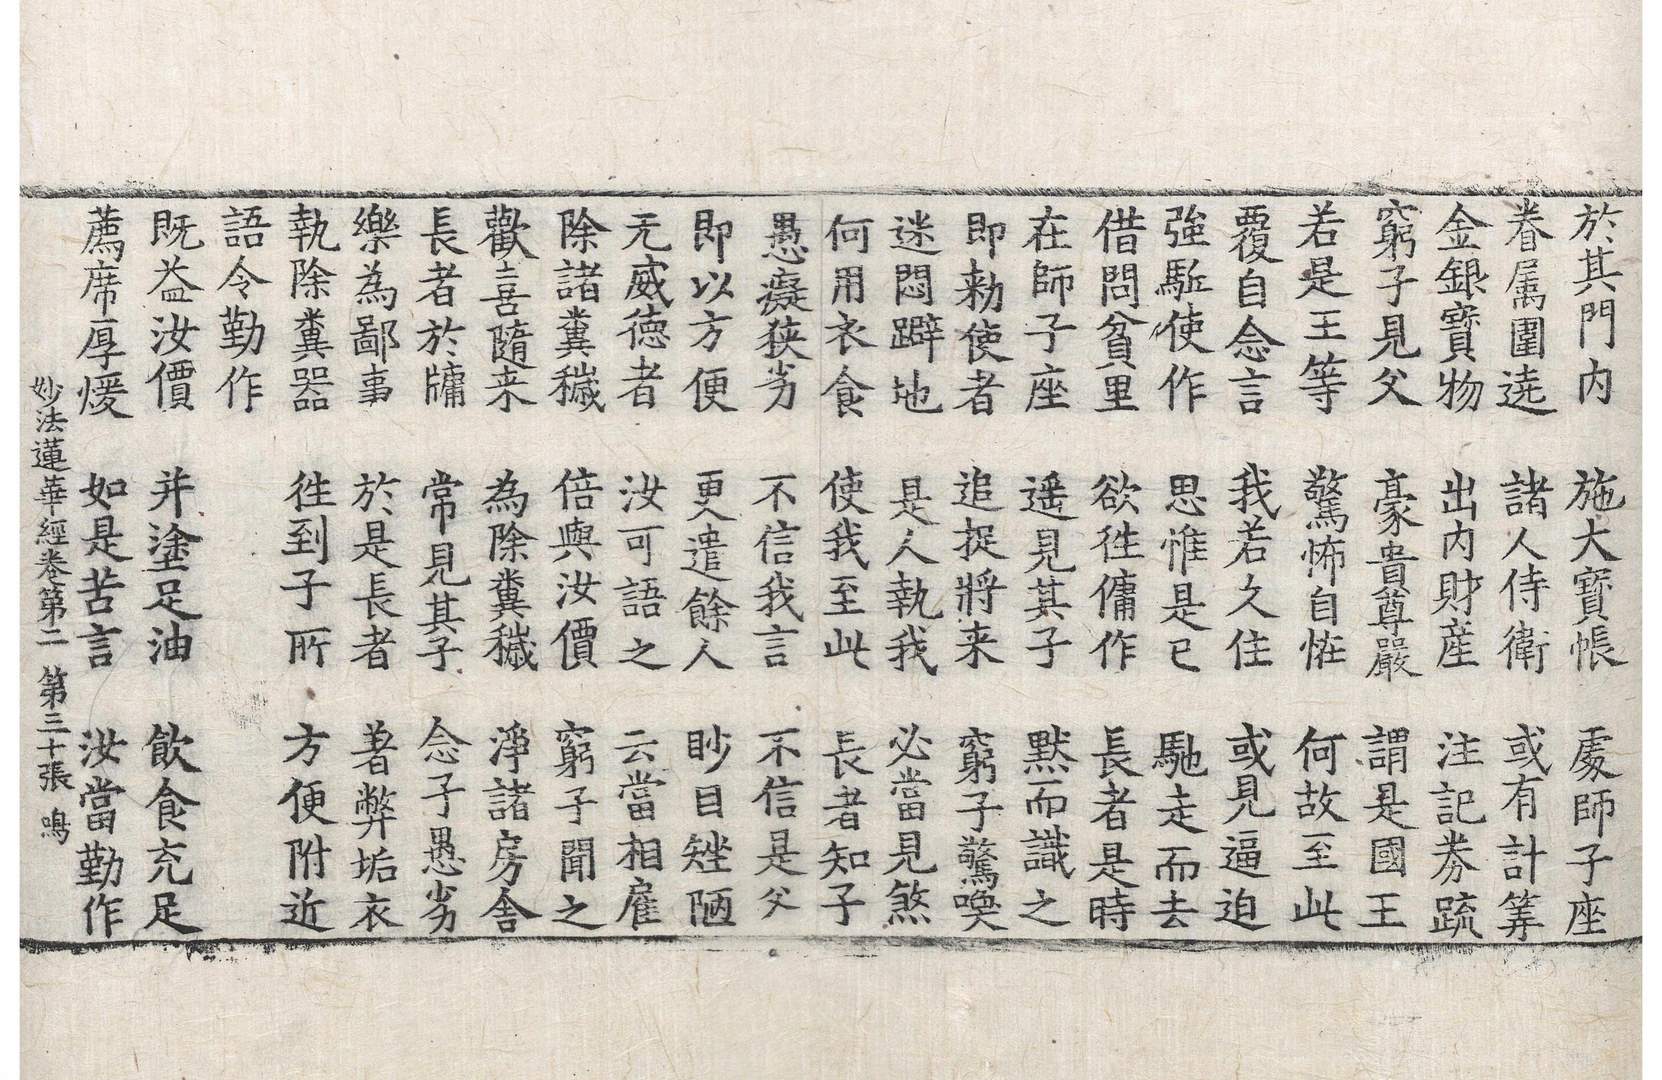 於其門內　施大寶帳　處師子座
眷属圍遶　諸人侍衛　或有計筭
金銀寶物　出內財産　注記券疏
窮子見父　豪貴尊嚴　謂是國王
若是王等　驚怖自恠　何故至此
覆自念言　我若久住　或見逼迫
強駈使作　思惟是已　馳走而去
借問貧里　欲徃傭作　長者是時
在師子座　遥見其子　默而識之
即勑使者　追捉將来　窮子驚喚
迷悶躃地　是人執我　必當見煞
何用衣食　使我至此　長者知子
愚癡狭劣　不信我言　不信是父
即以方便　更遣餘人　眇目矬陋
无威德者　汝可語之　云當相雇
除諸糞穢　倍與汝價　窮子聞之
歡喜隨来　為除糞穢　淨諸房舍
長者於牖　常見其子　念子愚劣
樂為鄙事　於是長者　著弊垢衣
執除糞器　徃到子所　方便附近
語令勤作
既益汝價　并塗足油　飲食充足
薦席厚煖　如是苦言　汝當勤作
妙法蓮華經卷第二　第三十張　鳴